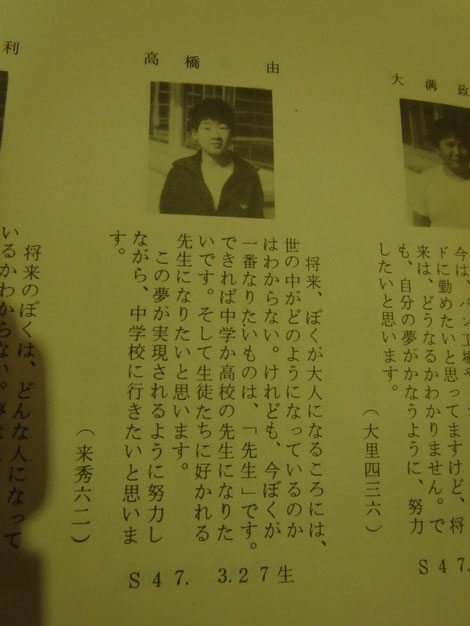 大溝政
今は、パン工場や
ドに勤めたいと思ってますけど、将
来は、どうなるかわかりません。で
も、自分の夢がかなうように、努力
したいと思います。
（大里四三六）
S47.
高橋　由
将来、ぼくが大人になるころには、
世の中がどのようになっているのか
はわからない。けれども、今ぼくが
一番なりたいものは、「先生」です。
できれば中学か高校の先生になりた
いです。そして生徒たちに好かれる
先生になりたいと思います。
この夢が実現されるように努力し
ながら、中学校に行きたいと思いま
す。
（来秀六二）
S47. 3.27生
利
将来のぼくは、どんな人になって
いるかわからない。